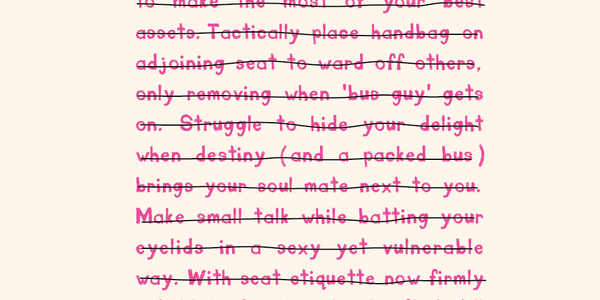 to make the most of your best
assets. Tactically place handbag on
adjoining seat to ward off others,
only removing when 'bus guy' gets
on. Struggle to hide your delight
when destiny (and a packed bus)
brings your soul mate next to you.
Make small talk while batting your
eyelids in a sexy yet vulnerable
way. With seat etiquette now firmly